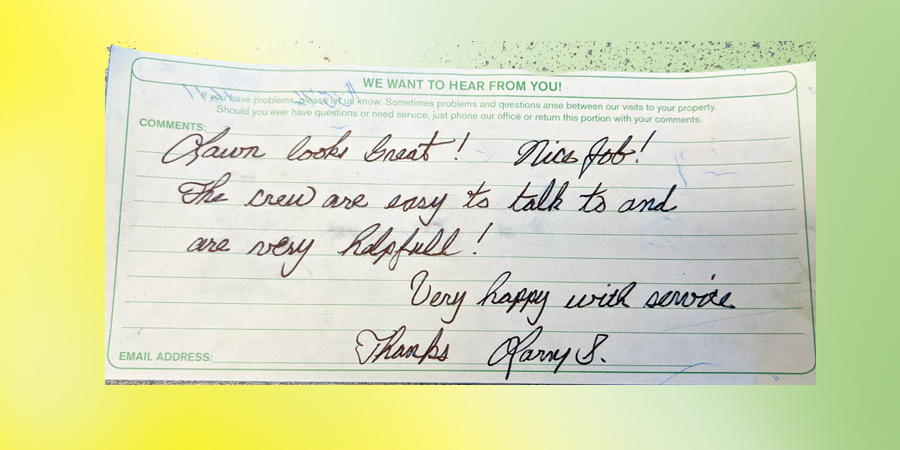 WE WANT TO HEAR FROM YOU!
If you have problems, please let us know. Sometimes problems and questions arise between our visits to your property.
Should you ever have questions or need service, just phone our office or return this portion with your comments.
COMMENTS:
Lawn looks Great! Nice Job!
The crew are easy to talk to and
are very helpfull!
Very happy with service
Thanks Larry S.
EMAIL ADDRESS: